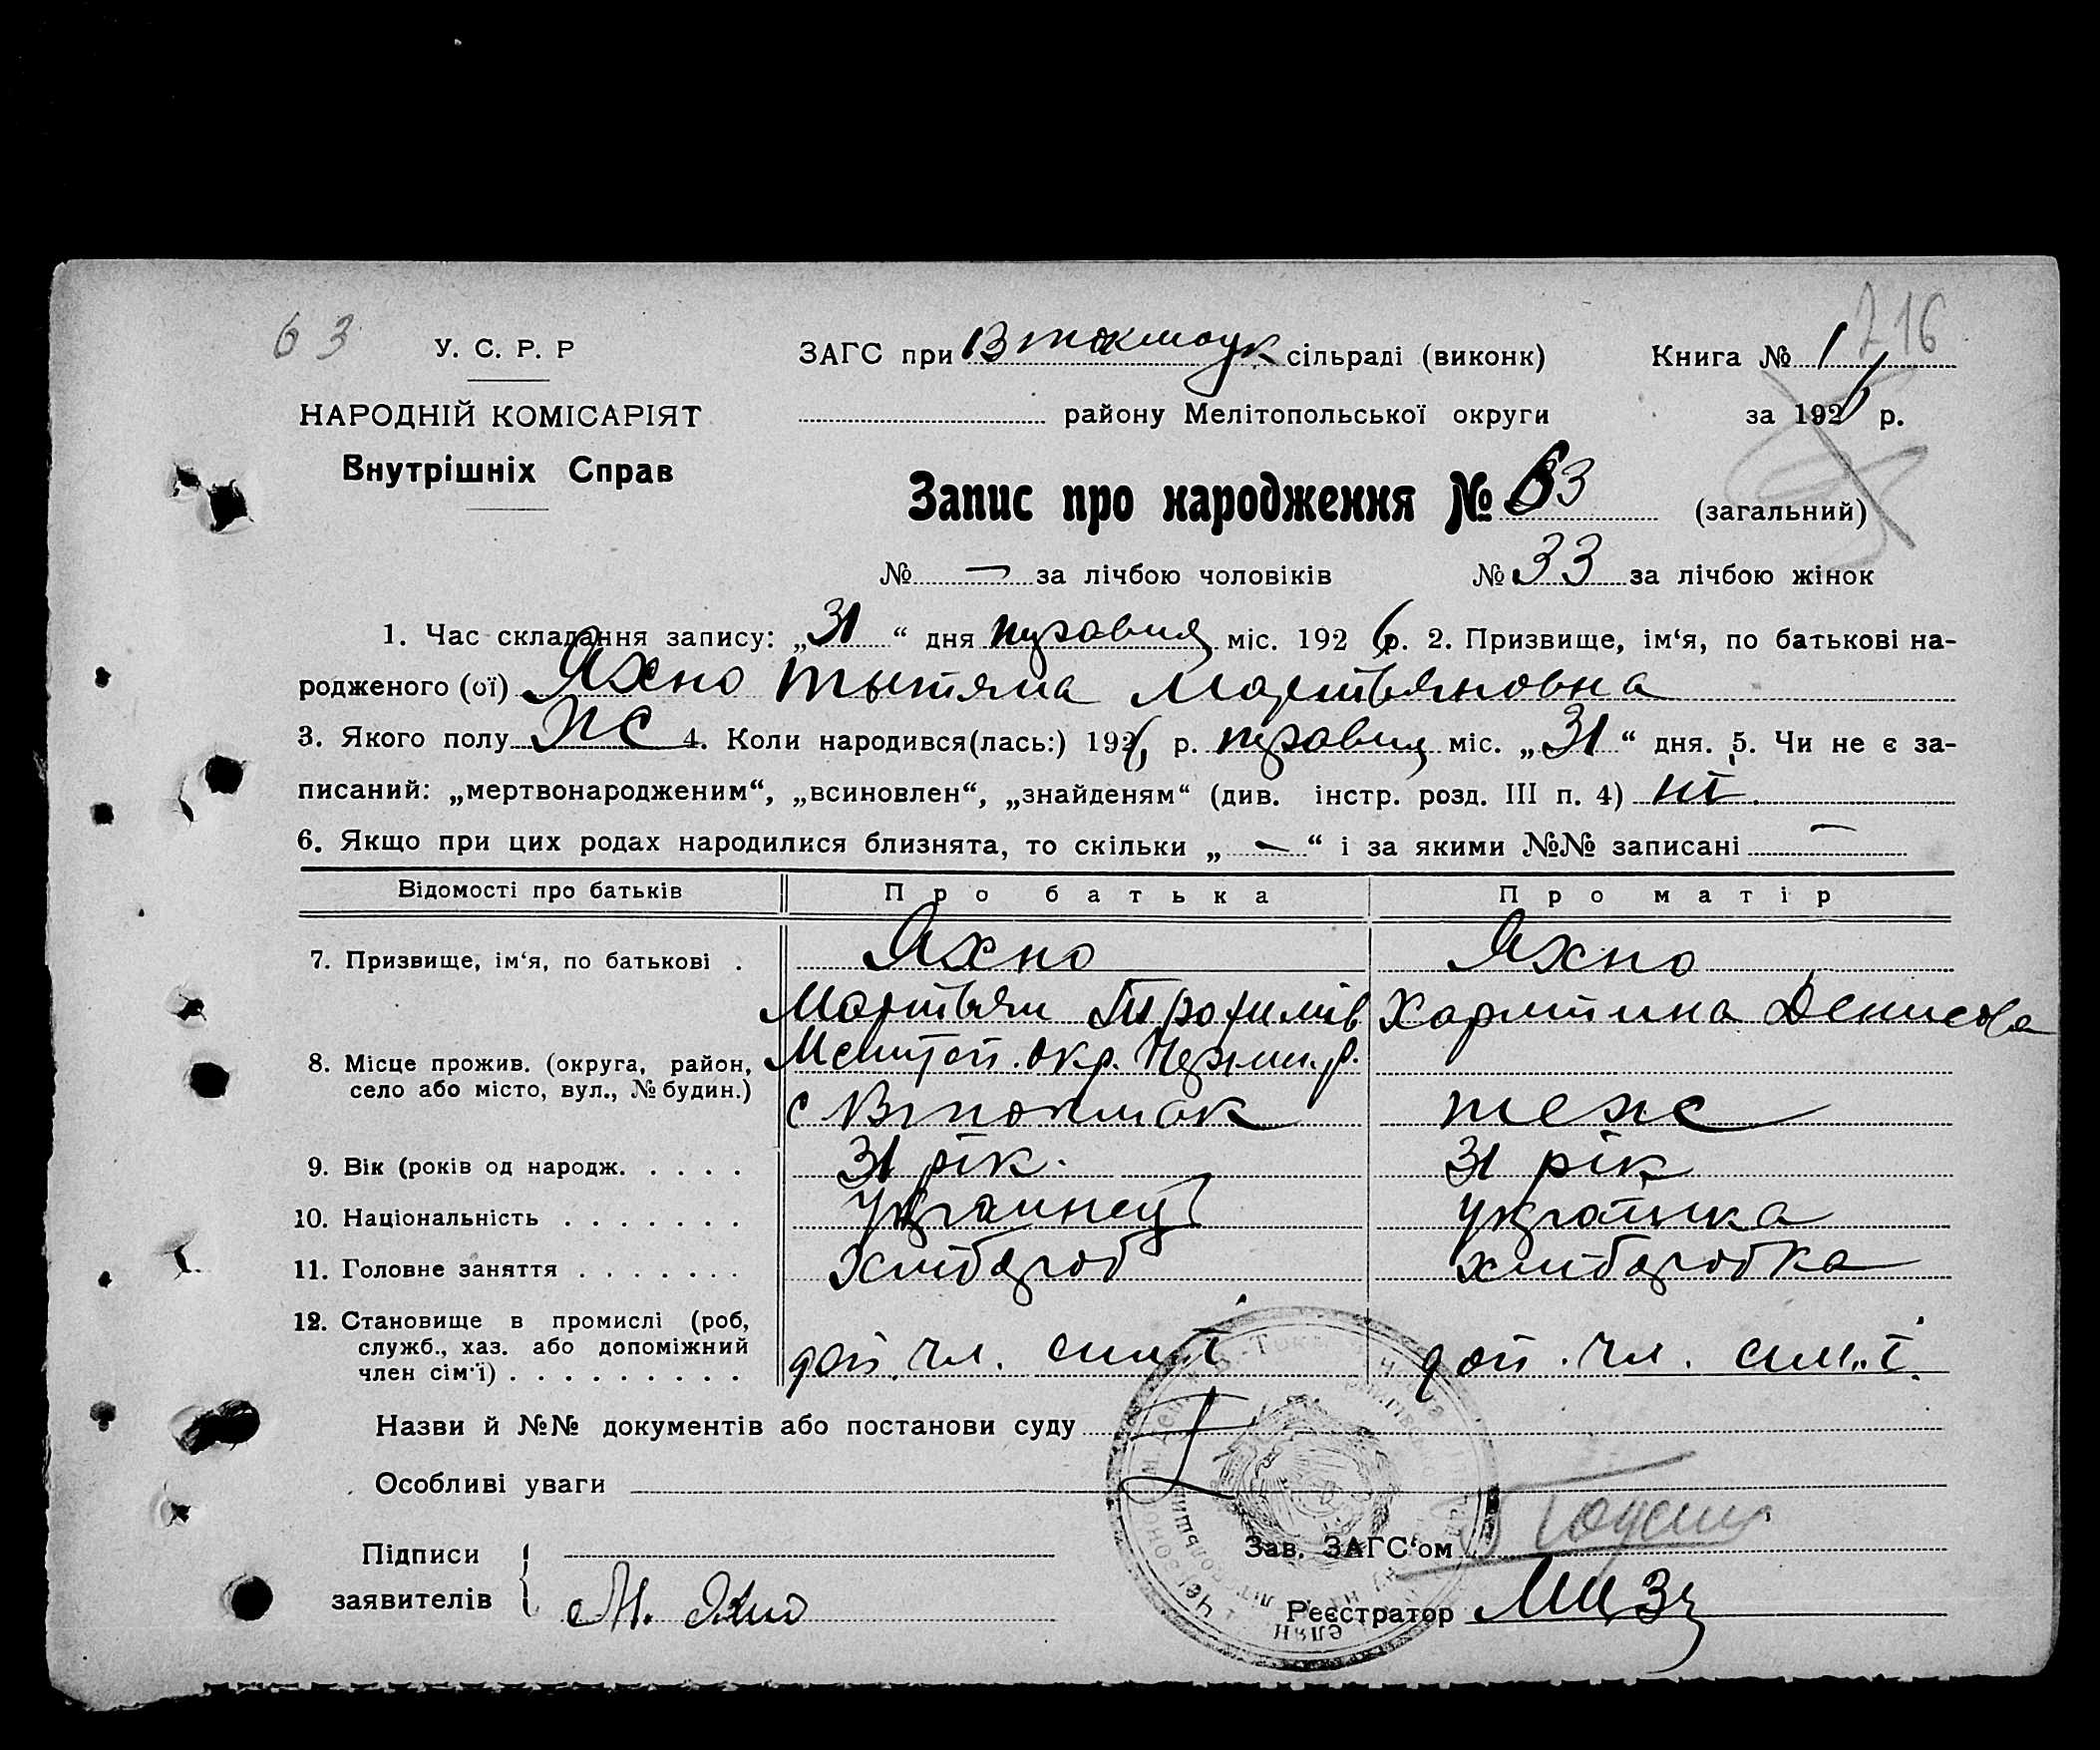 63
У. С. Р. Р
ЗАГС при Втокмацк сільраді (виконк)
Книга № 1
716
НАРОДНІЙ КОМІСАРІЯТ
району Мелітопольської округи
за 1926 р.
Внутрішніх Справ
Запис про народження № 63 (загальний)
№ — за лічбою чоловіків № 33 за лічбою жінок
1. Час складання запису: „31“ дня травня міс. 1926 р. 2. Призвище, ім‘я, по батькові на-
родженого (ої) Яхно Тытяна Мартьяновна
3. Якого полу ж 4. Коли народився(лась:) 1926 р. травня міс. „31“ дня. 5. Чи не є за-
писаний: „мертвонародженим“, „всиновлен“, „знайденям“ (див. інстр. розд. III п. 4) ні
6. Якщо при цих родах народилися близнята, то скільки „—“ і за якими №№ записані —
Відомості про батьків Про батька Про матір
7. Призвище, ім‘я, по батькові . Яхно Яхно
Мартьян Трофимів Харитина Денисова
8. Місце прожив. (округа, район, Меліт. окр. р.
село або місто, вул., № будин.) с Втокмак теж
9. Вік (років од народж. . . . . 31 рік. 31 рік
10. Національність . . . . . . . Украинець Украінка
11. Головне заняття . . . . . . . Хлібороб хліборобка
12. Становище в промислі (роб,
служб., хаз. або допоміжний доп. чл. сим'ї доп. чл. сим'ї.
член сім'ї) . . . . . . . . .
Назви й №№ документів або постанови суду
Особливі уваги
Підписи
заявителів
Зав. ЗАГС‘ом
М. Яхно
Реєстратор